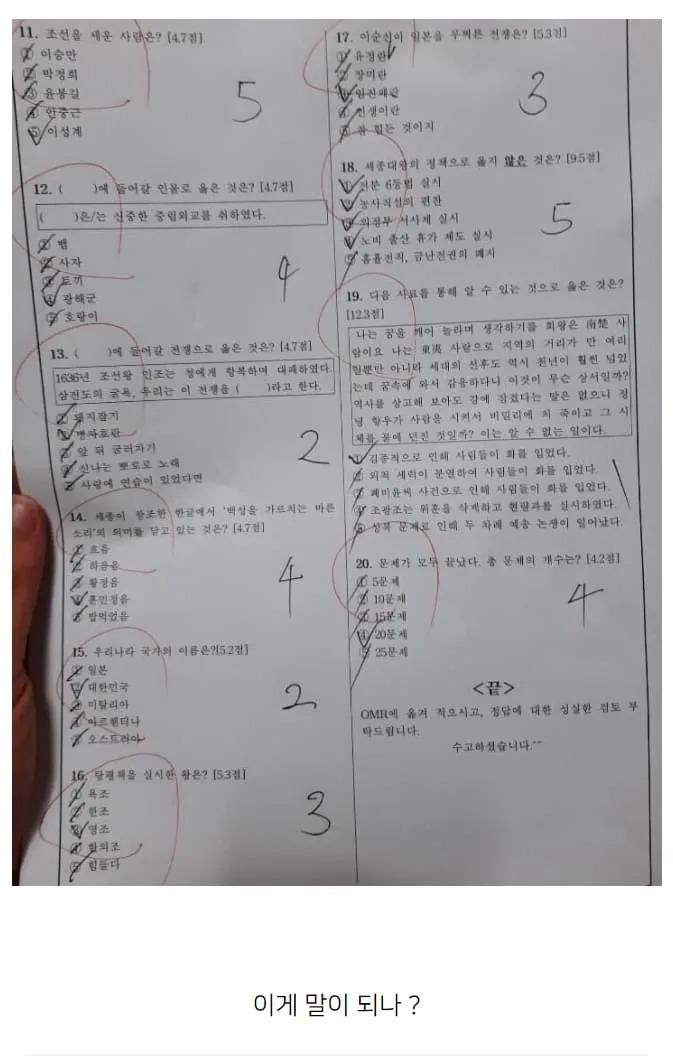 11. 조선을 세운 사람은? [4.7점]
① 이승만
② 박정희
③ 윤봉길
④ 안중근
⑤ 이성계
5
12. (      )에 들어갈 인물로 옳은 것은? [4.7점]
(      )은/는 신중한 중립외교를 취하였다.
① 뱀
② 사자
③ 토끼
④ 광해군
⑤ 호랑이
4
13. (      )에 들어갈 전쟁으로 옳은 것은? [4.7점]
1636년 조선왕 인조는 청에게 항복하며 대패하였다.
삼전도의 굴욕, 우리는 이 전쟁을 (      )라고 한다.
① 돼지잡기
② 병자호란
③ 앞 뒤 굴러차기
④ 신나는 뽀로로 노래
⑤ 사랑에 연습이 있었다면
2
14. 세종이 창조한 한글에서 '백성을 가르치는 바른
소리'의 의미를 담고 있는 것은? [4.7점]
① 흐음
② 하음음
③ 황정음
④ 훈민정음
⑤ 밥먹었음
4
15. 우리나라 국가의 이름은?[5.2점]
① 일본
② 대한민국
③ 이탈리아
④ 아르헨티나
⑤ 오스트리아
2
16. 탕평책을 실시한 왕은? [5.3점]
① 욕조
② 한조
③ 영조
④ 합의조
⑤ 힘들다
3
17. 이순신이 일본을 무찌른 전쟁은? [5.3점]
① 유정란
② 장미란
③ 임진왜란
④ 인생이란
⑤ 참 힘든 것이지
3
18. 세종대왕의 정책으로 옳지 않은 것은? [9.5점]
① 전분 6등법 실시
② 농사직설의 편찬
③ 의정부 서사제 실시
④ 노비 출산 휴가 제도 실시
⑤ 흠휼전칙, 금난전권의 폐지
5
19. 다음 사료를 통해 알 수 있는 것으로 옳은 것은?
[12.3점]
나는 꿈을 깨어 놀라며 생각하기를 회왕은 南楚 사
람이요 나는 東夷 사람으로 지역의 거리가 만 여리
일뿐만 아니라 세대의 선후도 역시 천년이 훨씬 넘었
는데 꿈속에 와서 감응하다니 이것이 무슨 상서일까?
역사를 상고해 보아도 강에 잠겼다는 말은 없으니 정
녕 항우가 사람을 시켜서 비밀리에 쳐 죽이고 그 시
체를 물에 던진 것일까? 이는 알 수 없는 일이다.
① 김종직으로 인해 사림들이 화를 입었다.
② 외척 세력이 분열하여 사림들이 화를 입었다.
③ 폐비윤씨 사건으로 인해 사림들이 화를 입었다.
④ 조광조는 위훈을 삭제하고 현량과를 실시하였다.
⑤ 상복 문제로 인해 두 차례 예송 논쟁이 일어났다.
1
20. 문제가 모두 끝났다. 총 문제의 개수는? [4.2점]
① 5문제
② 10문제
③ 15문제
④ 20문제
⑤ 25문제
4
<끝>
OMR에 옮겨 적으시고, 정답에 대한 성실한 검토 부
탁드립니다.
수고하셨습니다.^^
이게 말이 되나 ?